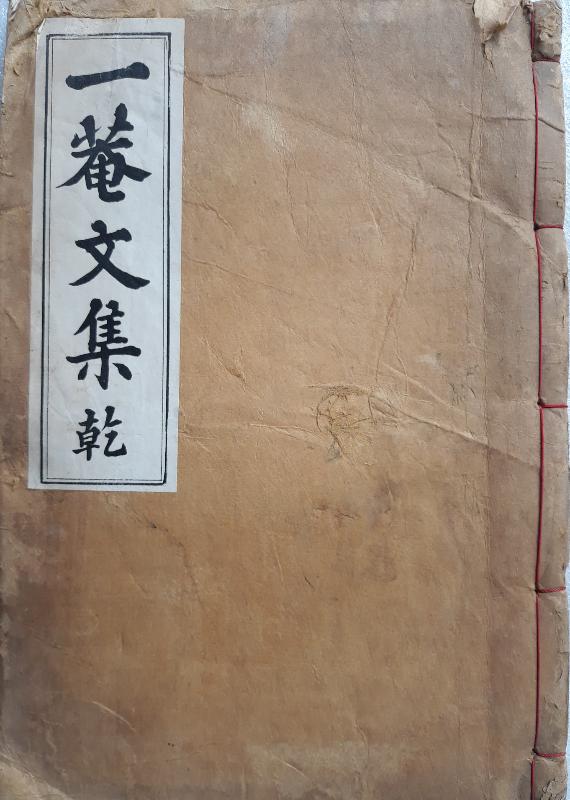 一菴文集 乾